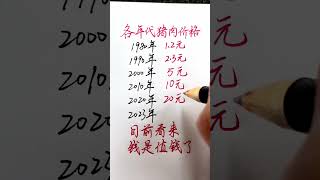 各年代猪肉价格
1980年 1.2元
1990年 2.5元
2000年 5元
2010年 10元
2020年 20元
2023年
目前看来
钱是值钱了